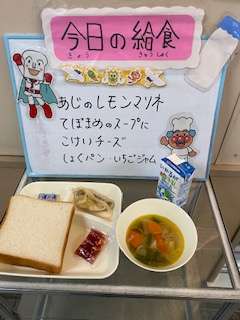 今日の給食
きょう きゅうしょく
あじのレモンマリネ
てぼまめのスープに
こけいチーズ
しょくパン いちごジャム